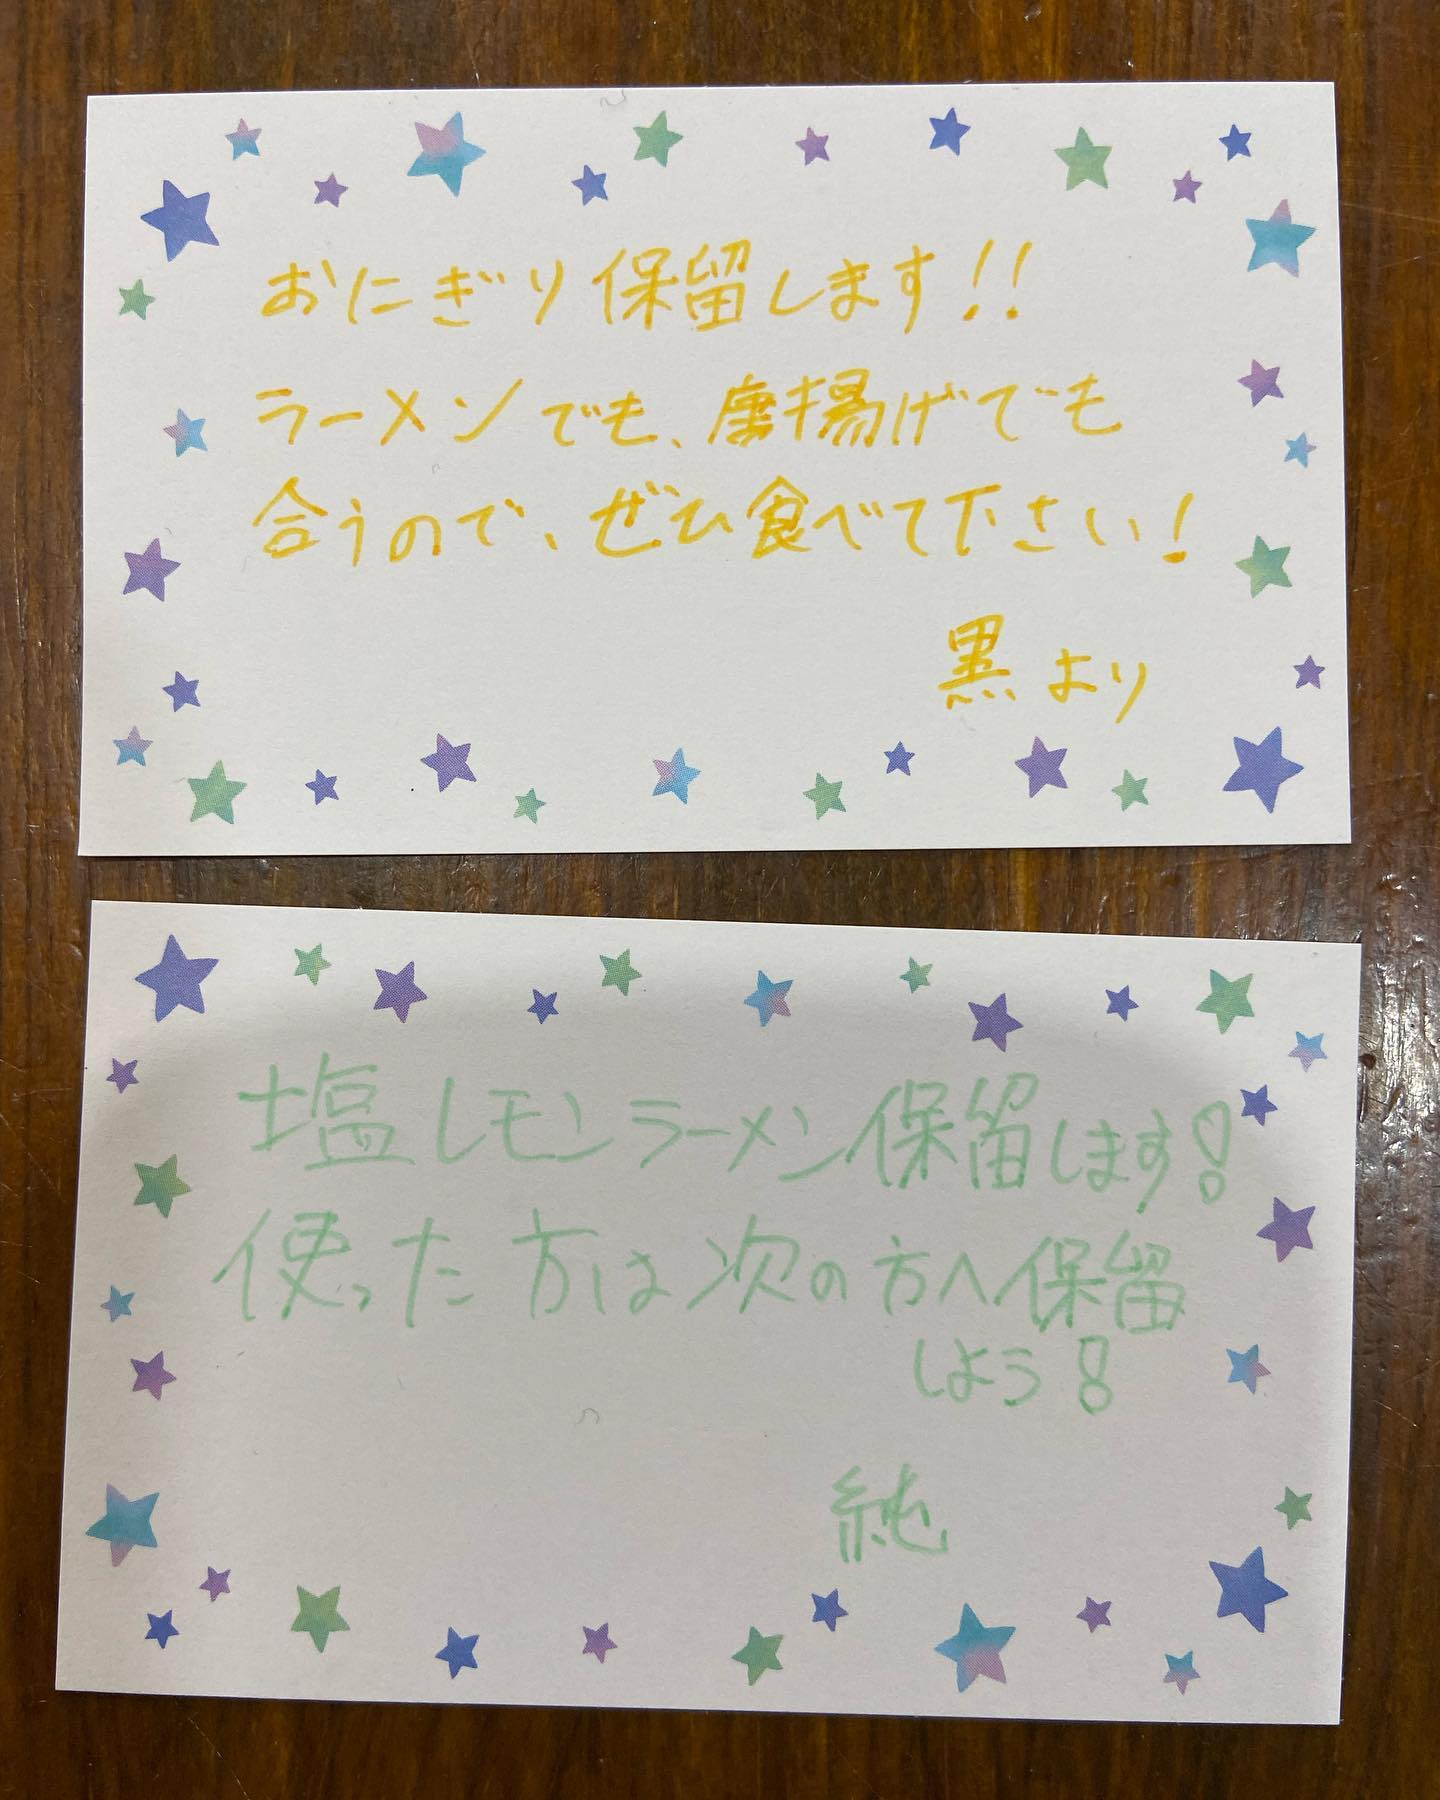 おにぎり保留します!!
ラーメンでも、唐揚げでも
合うので、ぜひ食べて下さい!
黒より
塩レモンラーメン保留します!
使った方は次の方へ保留
しよう!
純